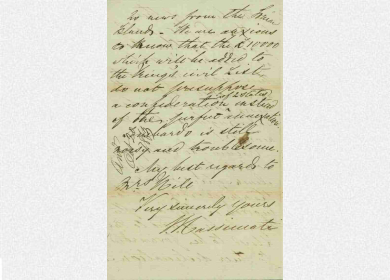 no news from the Ionian
Islands. We are anxious
to know that the £10000
which will be added to
the King's civil List
do not presuppose
a confederation instead
of 2 states
of the perfect annexation
is still
noisy and troublesome.
My best regards to
Mrs
Very sincerely yours